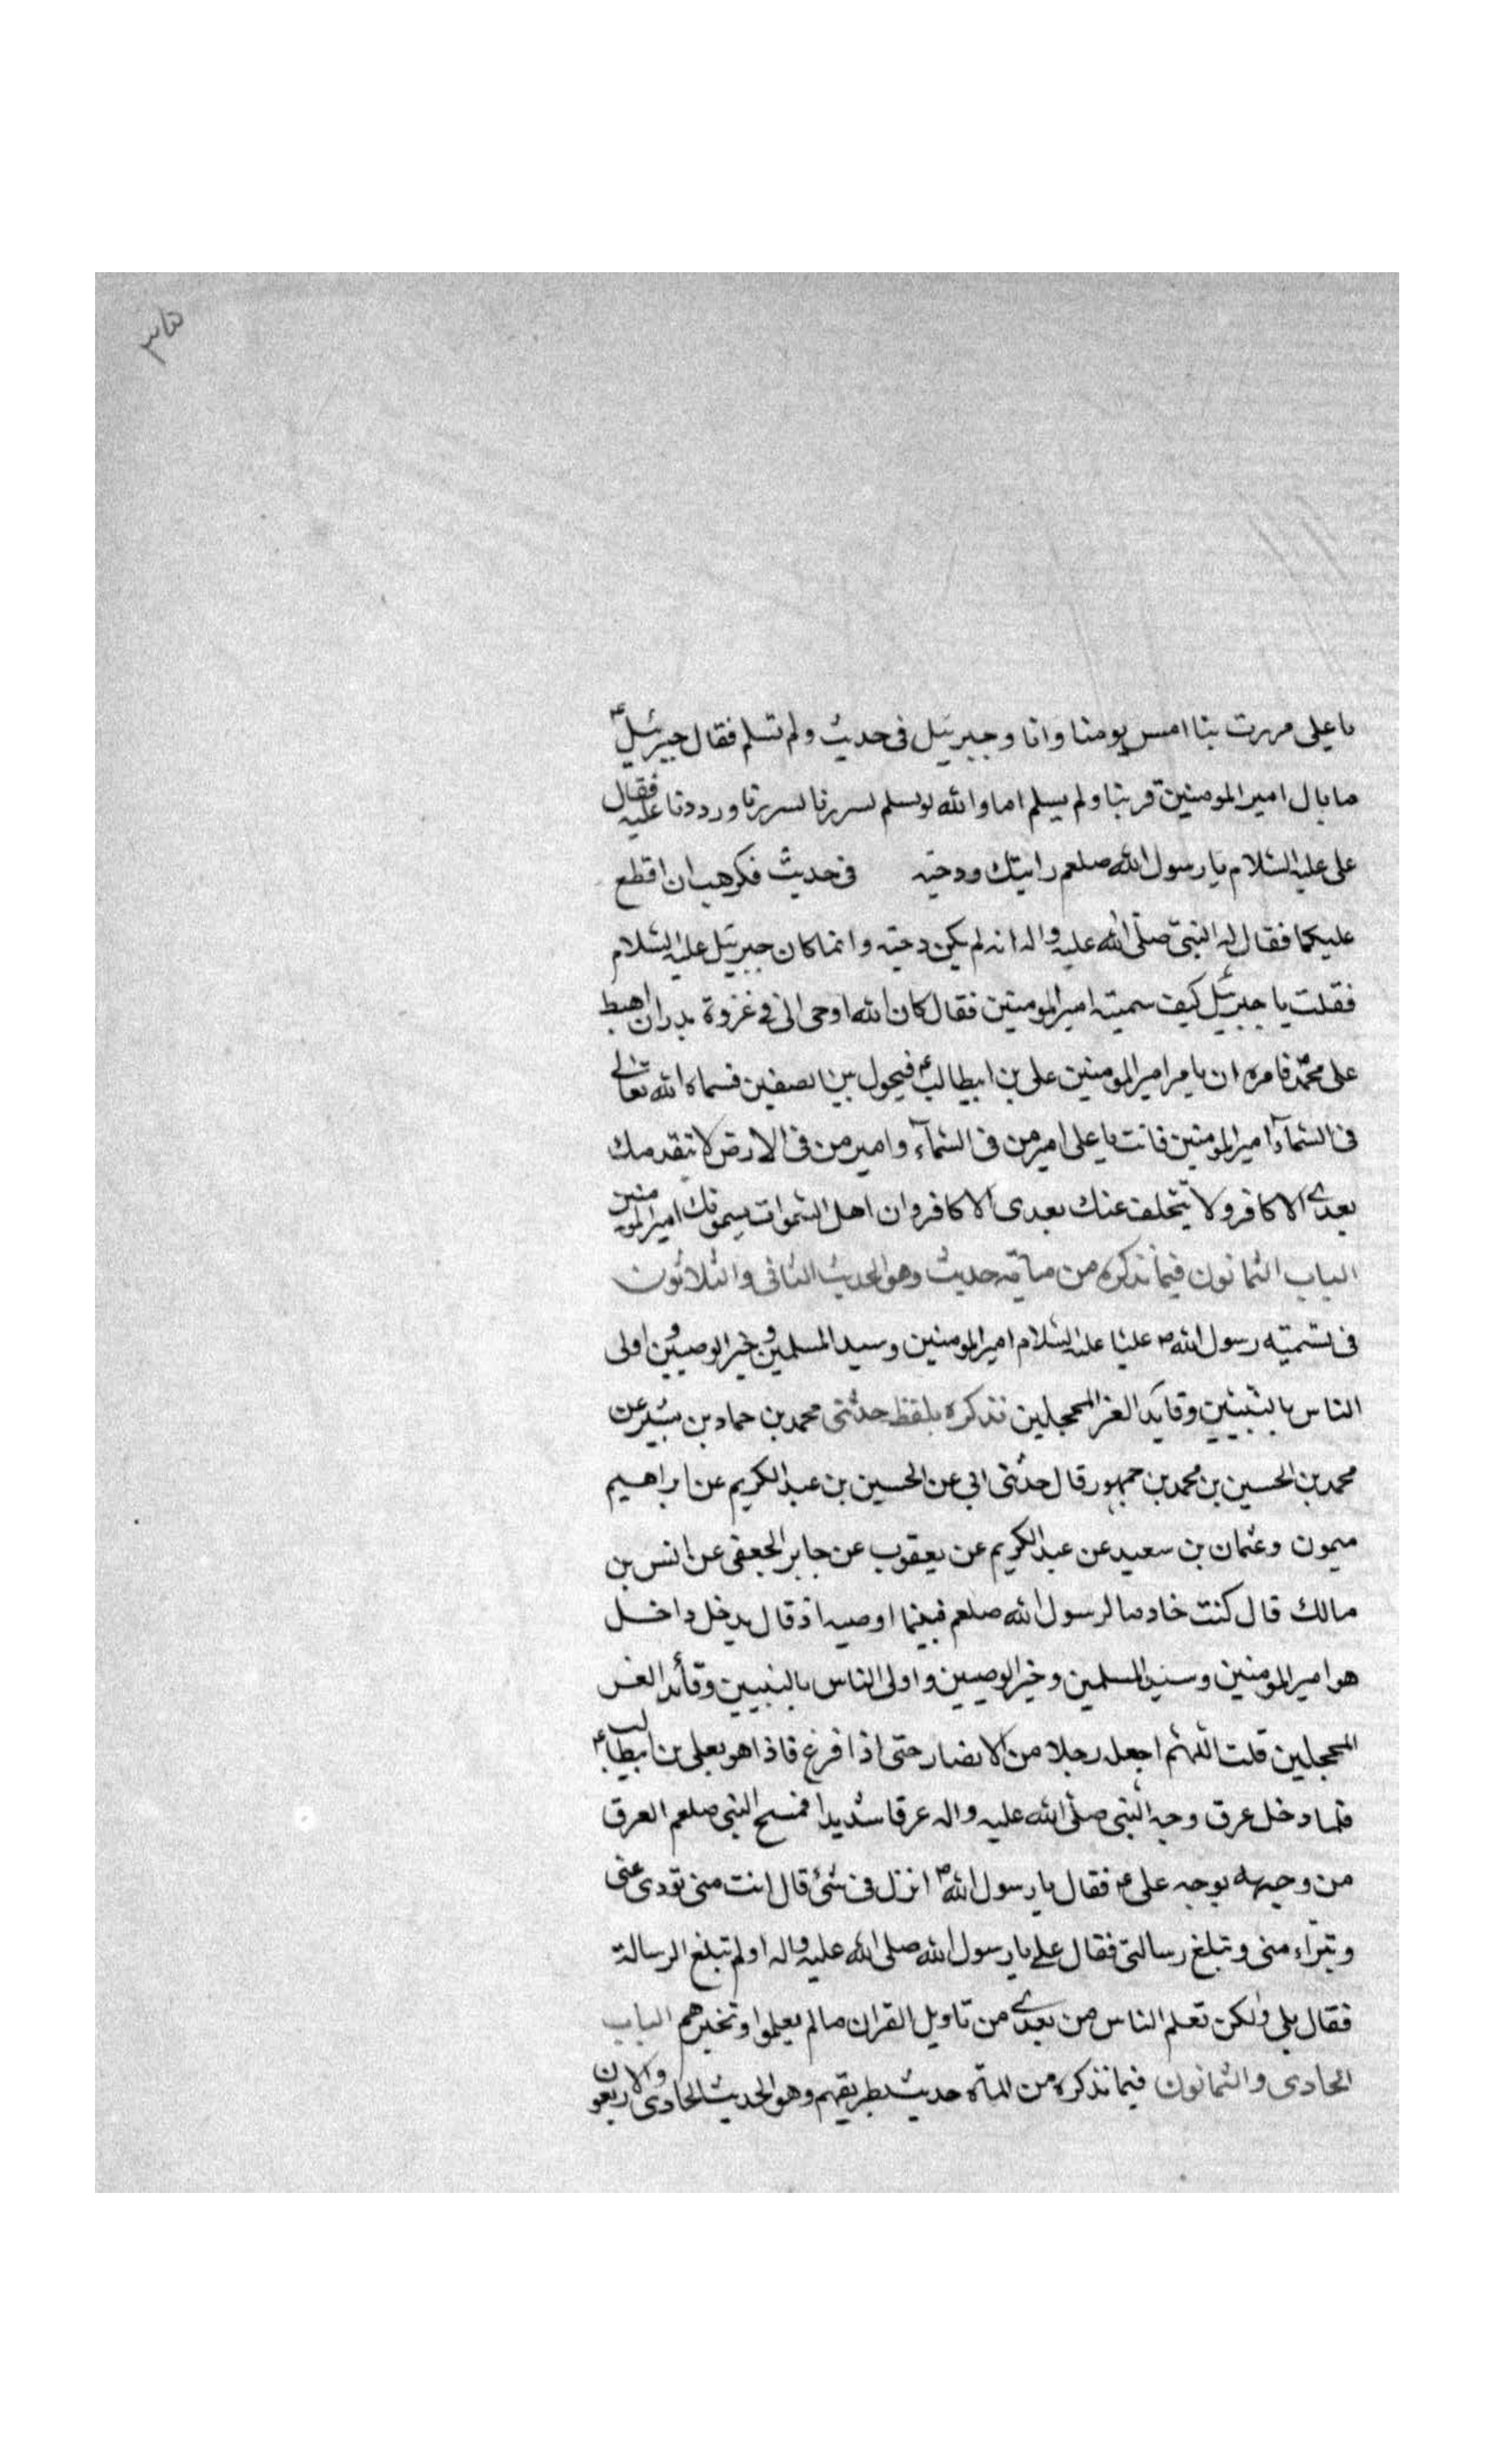 يا على مررت بنا امس يومنا وانا وجبرئيل فى حديث ولم تسلم فقال جبرئيل ع
ما بال امير المومنين مر بنا ولم يسلم اما والله لو سلم لسررنا ورددنا عليه فقال
على عليه السلام يا رسول الله صلعم رايتك ودحيه فى حديث فكرهت ان اقطع
عليكما فقال له النبى صلى الله عليه واله انه لم يكن دحيه وانما كان جبرئيل عليه السلام
فقلت يا جبرئيل كيف سميته امير المومنين فقال كان الله اوحى الى فى غزوة بدر ان اهبط
على محمد فامره ان يامر امير المومنين على بن ابيطالب ع فيجول بين الصفين فسماه الله تعالى
فى السمآء امير المومنين فانت يا على امير من فى السمآء وامير من فى الارض لا يتقدمك
بعدى الا كافر ولا يتخلف عنك بعدى الا كافر وان اهل السموات يسمونك امير المومنين
الباب الثمانون فيما نذكره من مائه حديث وهو الحديث الثانى والثلاثون
فى تسميته رسول الله ص عليا عليه السلام امير المومنين وسيد المسلمين وخير الوصيين واولى
الناس بالنبيين وقايد الغر المحجلين نذكره بلفظ حدثنى محمد بن حماد بن بشير عن
محمد بن الحسين بن محمد بن جمهور قال حدثنى ابى عن الحسين بن عبد الكريم عن ابراهيم
ميمون وعثمان بن سعيد عن عبد الكريم عن يعقوب عن جابر الجعفى عن انس بن
مالك قال كنت خادما لرسول الله صلعم فبينما اوضيه اذ قال يدخل داخل
هو امير المومنين وسيد المسلمين وخير الوصيين واولى الناس بالنبيين وقائد الغر
المحجلين قلت اللهم اجعل رجلا من الانصار حتى اذا فرغ فاذا هو بعلى بن ابيطالب ع
فلما دخل عرق وجه النبى صلى الله عليه واله عرقا شديدا فمسح النبى صلعم العرق
من وجهه بوجه على ع فقال يا رسول الله ص انزل فى شئ قال انت منى تودى عنى
وتبراء منى وتبلغ رسالتى فقال على يا رسول الله صلى الله عليه واله اولم تبلغ الرسالة
فقال بلى ولكن تعلم الناس من بعدى من تاويل القران مالم يعلموا وتخبرهم الباب
الحادى والثمانون فيما نذكره من المائه حديث بطريقهم وهو الحديث الحادى والاربعون